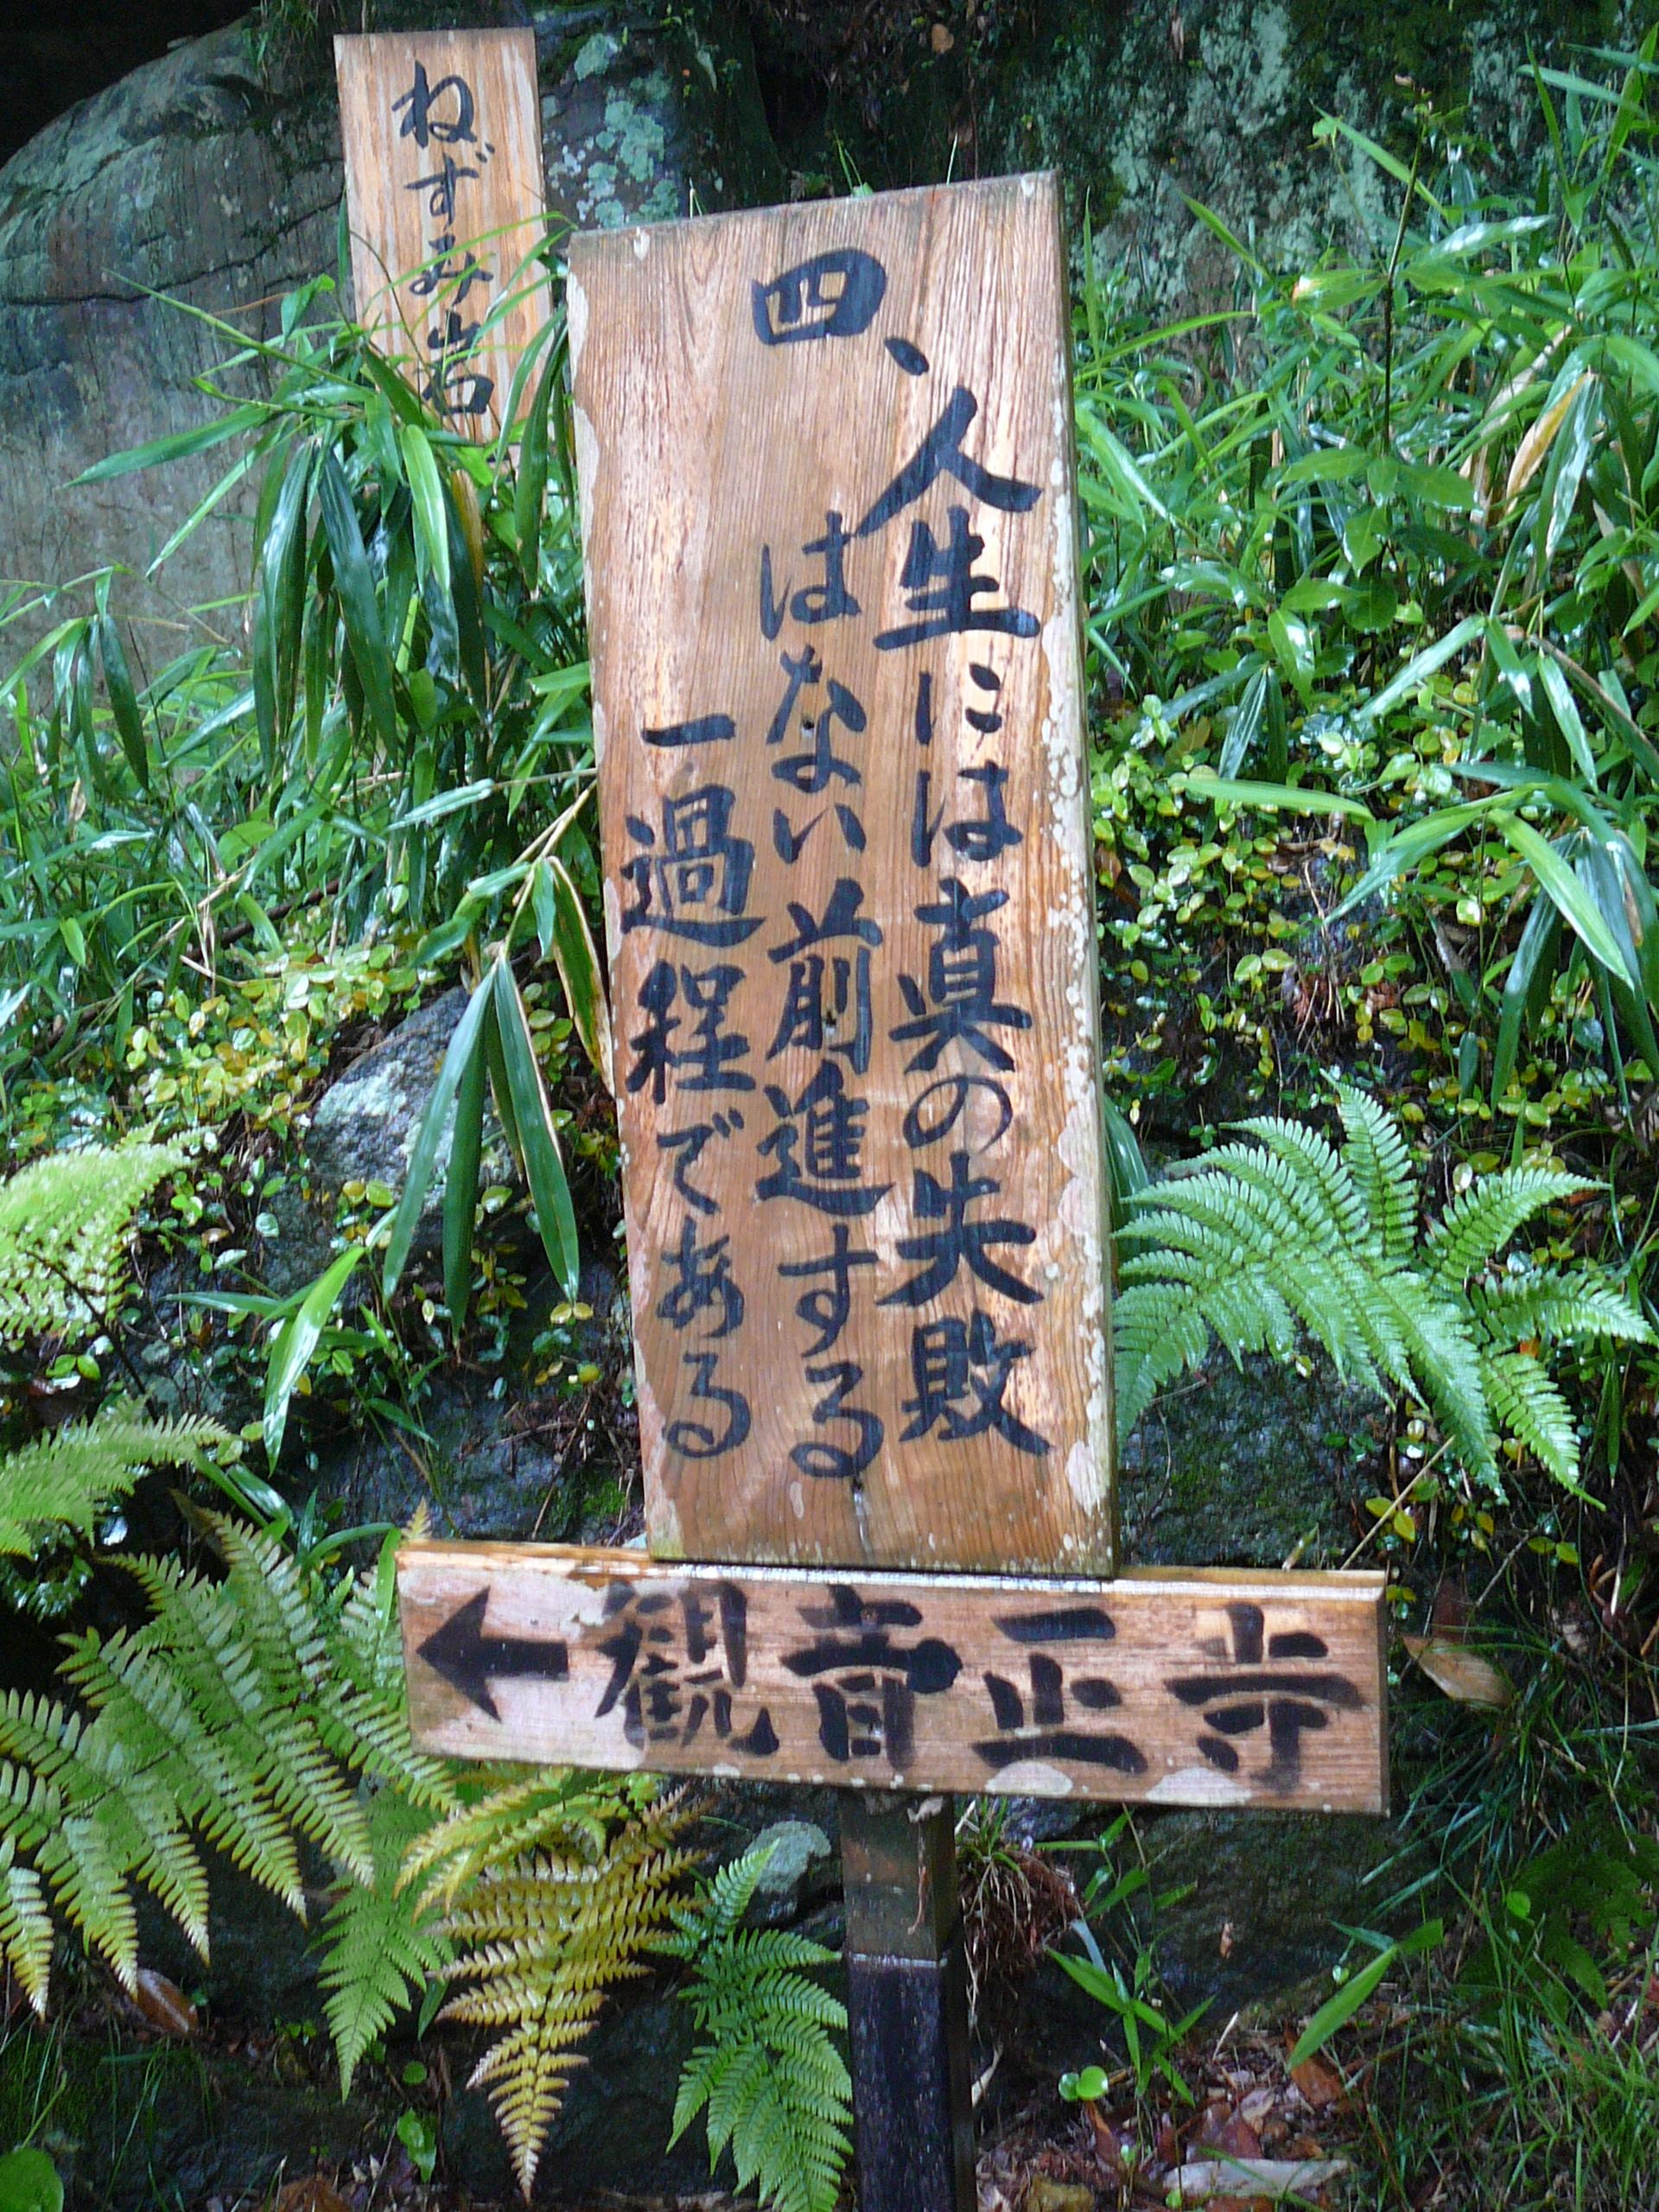 ねずみ岩
四、人生には真の失敗
はない前進する
一過程である
←観音正寺